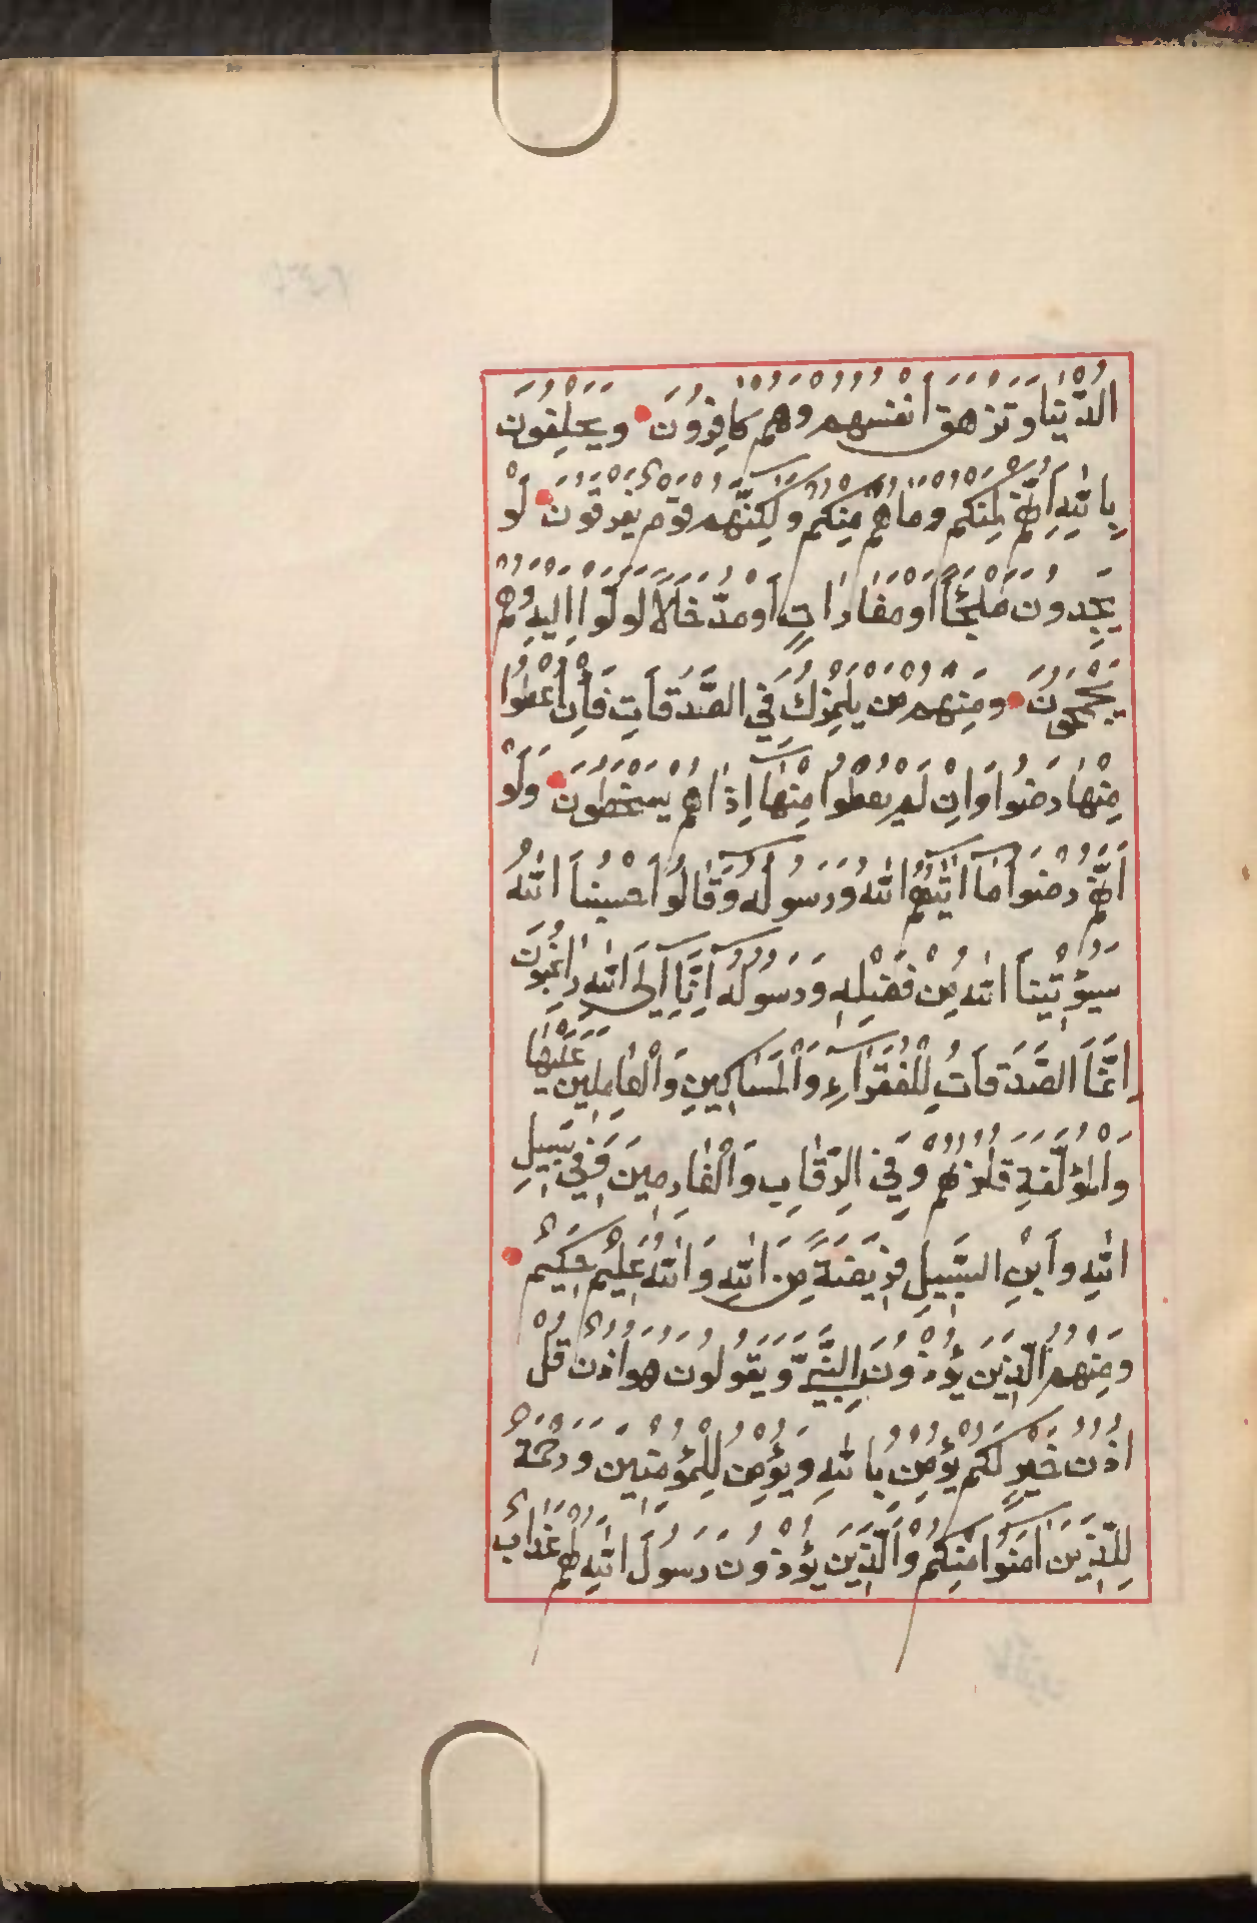 الدُّنْيَا وَتَزْهَقَ اَنْفُسُهُمْ وَهُمْ كَافِرُونَ وَيَحْلِفُونَ
بِاللّٰهِ اِنَّهُمْ لَمِنْكُمْ وَمَا هُمْ مِنْكُمْ وَلٰكِنَّهُمْ قَوْمٌ يَفْرَقُونَ لَوْ
يَجِدُونَ مَلْجَئًا اَوْ مَغَارَاتٍ اَوْ مُدَّخَلًا لَوَلَّوْا اِلَيْهِ وَهُمْ
يَجْمَحُونَ وَمِنْهُمْ مَنْ يَلْمِزُكَ فِي الصَّدَقَاتِ فَاِنْ اُعْطُوا
مِنْهَا رَضُوا وَاِنْ لَمْ يُعْطَوْا مِنْهَا اِذَا هُمْ يَسْخَطُونَ وَلَوْ
اَنَّهُمْ رَضُوا مَا اٰتٰيهُمُ اللّٰهُ وَرَسُولُهُ وَقَالُوا حَسْبُنَا اللّٰهُ
سَيُؤْتِينَا اللّٰهُ مِنْ فَضْلِهِ وَرَسُولُهُ اِنَّا اِلَى اللّٰهِ رَاغِبُونَ
اِنَّمَا الصَّدَقَاتُ لِلْفُقَرَاءِ وَالْمَسَاكِينِ وَالْعَامِلِينَ عَلَيْهَا
وَالْمُؤَلَّفَةِ قُلُوبُهُمْ وَفِي الرِّقَابِ وَالْغَارِمِينَ وَفِي سَبِيلِ
اللّٰهِ وَابْنِ السَّبِيلِ فَرِيضَةً مِنَ اللّٰهِ وَاللّٰهُ عَلِيمٌ حَكِيمٌ
وَمِنْهُمُ الَّذِينَ يُؤْذُونَ النَّبِيَّ وَيَقُولُونَ هُوَ اُذُنٌ قُلْ
اُذُنُ خَيْرٍ لَكُمْ يُؤْمِنُ بِاللّٰهِ وَيُؤْمِنُ لِلْمُؤْمِنِينَ وَرَحْمَةٌ
لِلَّذِينَ اٰمَنُوا مِنْكُمْ وَالَّذِينَ يُؤْذُونَ رَسُولَ اللّٰهِ لَهُمْ عَذَابٌ